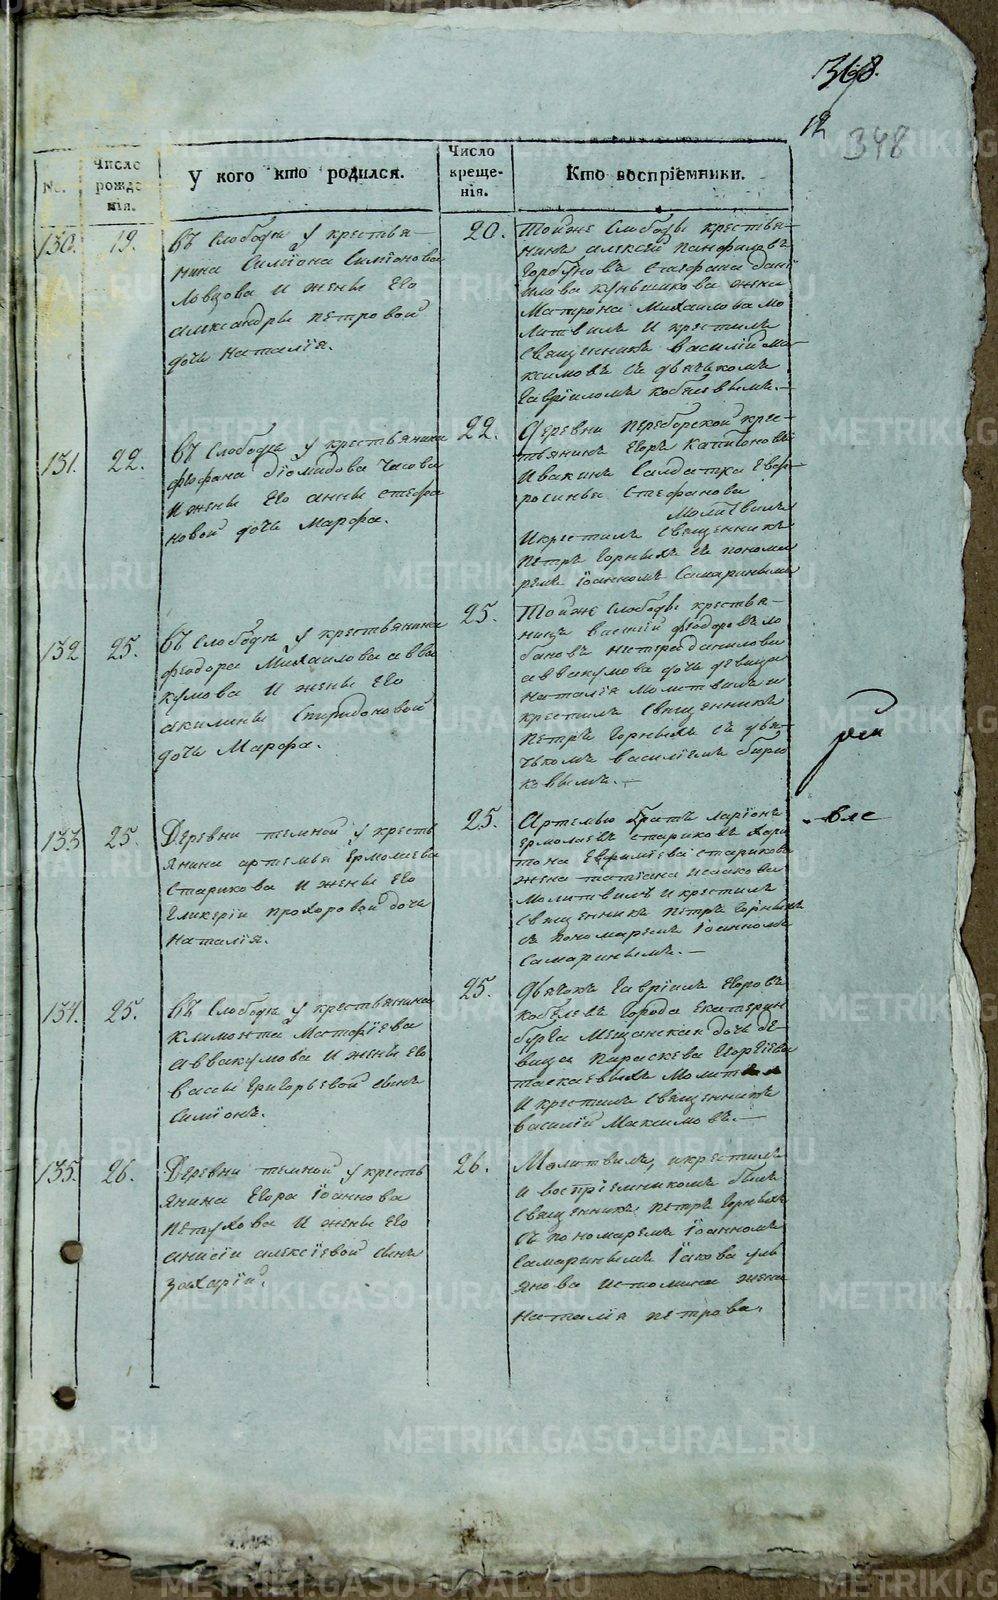 368.
12
348
№.
Число рожденія.
У кого кто родился.
Число крещенія.
Кто воспріемники.
130.
19.
Въ Слободѣ у крестья-
нина Симіона Симіонова
Ловцова и жены его
Александры Петровой
дочь Наталія.
20.
Тойже Слободы крестья-
нинъ Алексѣй Панфиловъ
Горбуновъ Стефана Дані
илова Куньшикова жена
Матрона Михаилова мо
литвилъ и крестилъ
Священникъ Василій Ма-
ксимовъ съ дьячькомъ
Гавріиломъ Кобелевымъ.-
131.
22.
Въ Слободѣ у крестьянина
Фофана Діомидова Часова
и жены его Анны Стефа
новой дочь Марфа.
22.
Деревни Переборской крес-
тьянинъ Егоръ Капитоновъ
Ивакинъ Салдатка Евф-
росинья Стефанова
Молитвилъ
и крестилъ Священникъ
Петръ Горныхъ съ понома
ремъ Іоанномъ Самаринымъ
132
25.
Въ Слободѣ у крестьянина
Феодора Михаилова Авва
кумова и жены его
Акилины Спиридоновой
дочь Марфа.
25.
Тойже Слободы крестья-
нинъ Василій Феодоровъ Ло
бановъ Петра Данилова
Аввакумова дочь девица
Наталія молитвилъ и
крестилъ Священникъ
Петръ Горныхъ съ дья-
чькомъ Василіемъ Бирю
ковымъ.-
133
25.
Деревни Темной у кресть
янина Артемья Ермолаева
Старикова и жены его
Гликеріи Прохоровой дочь
Наталія.
25.
Артемью братъ Ларіонъ
Ермолаевъ Стариковъ Хари
тона Евфиміева Старикова
жена Татіана Исакова
молитвилъ и крестилъ
Священникъ Петръ Горныхъ
съ пономаремъ Іоанномъ
Самаринымъ.-
134.
25.
Въ Слободѣ у крестьянина
Климонта Матфіева
Аввакумова и жены его
Васы Григорьевой сынъ
Симіонъ.
25.
Дьячокъ Гавріилъ Егоровъ
Кобелевъ города Екатерин
бурга Мещанская дочь де-
вица Параскева Георгіева
Молитвилъ
и крестилъ Священникъ
Василій Максимовъ.-
135.
26.
Деревни Темной у кресть
янина Егора Іоаннова
Петухова и жены его
Анисіи Алексіевой сынъ
Захарій.
26.
Молитвилъ, и крестилъ
и воспріемникомъ былъ
Священникъ Петръ Горныхъ
съ пономаремъ Іоанномъ
Самаринымъ Іакова Уль
янова Истомина жена
Наталія Петрова.